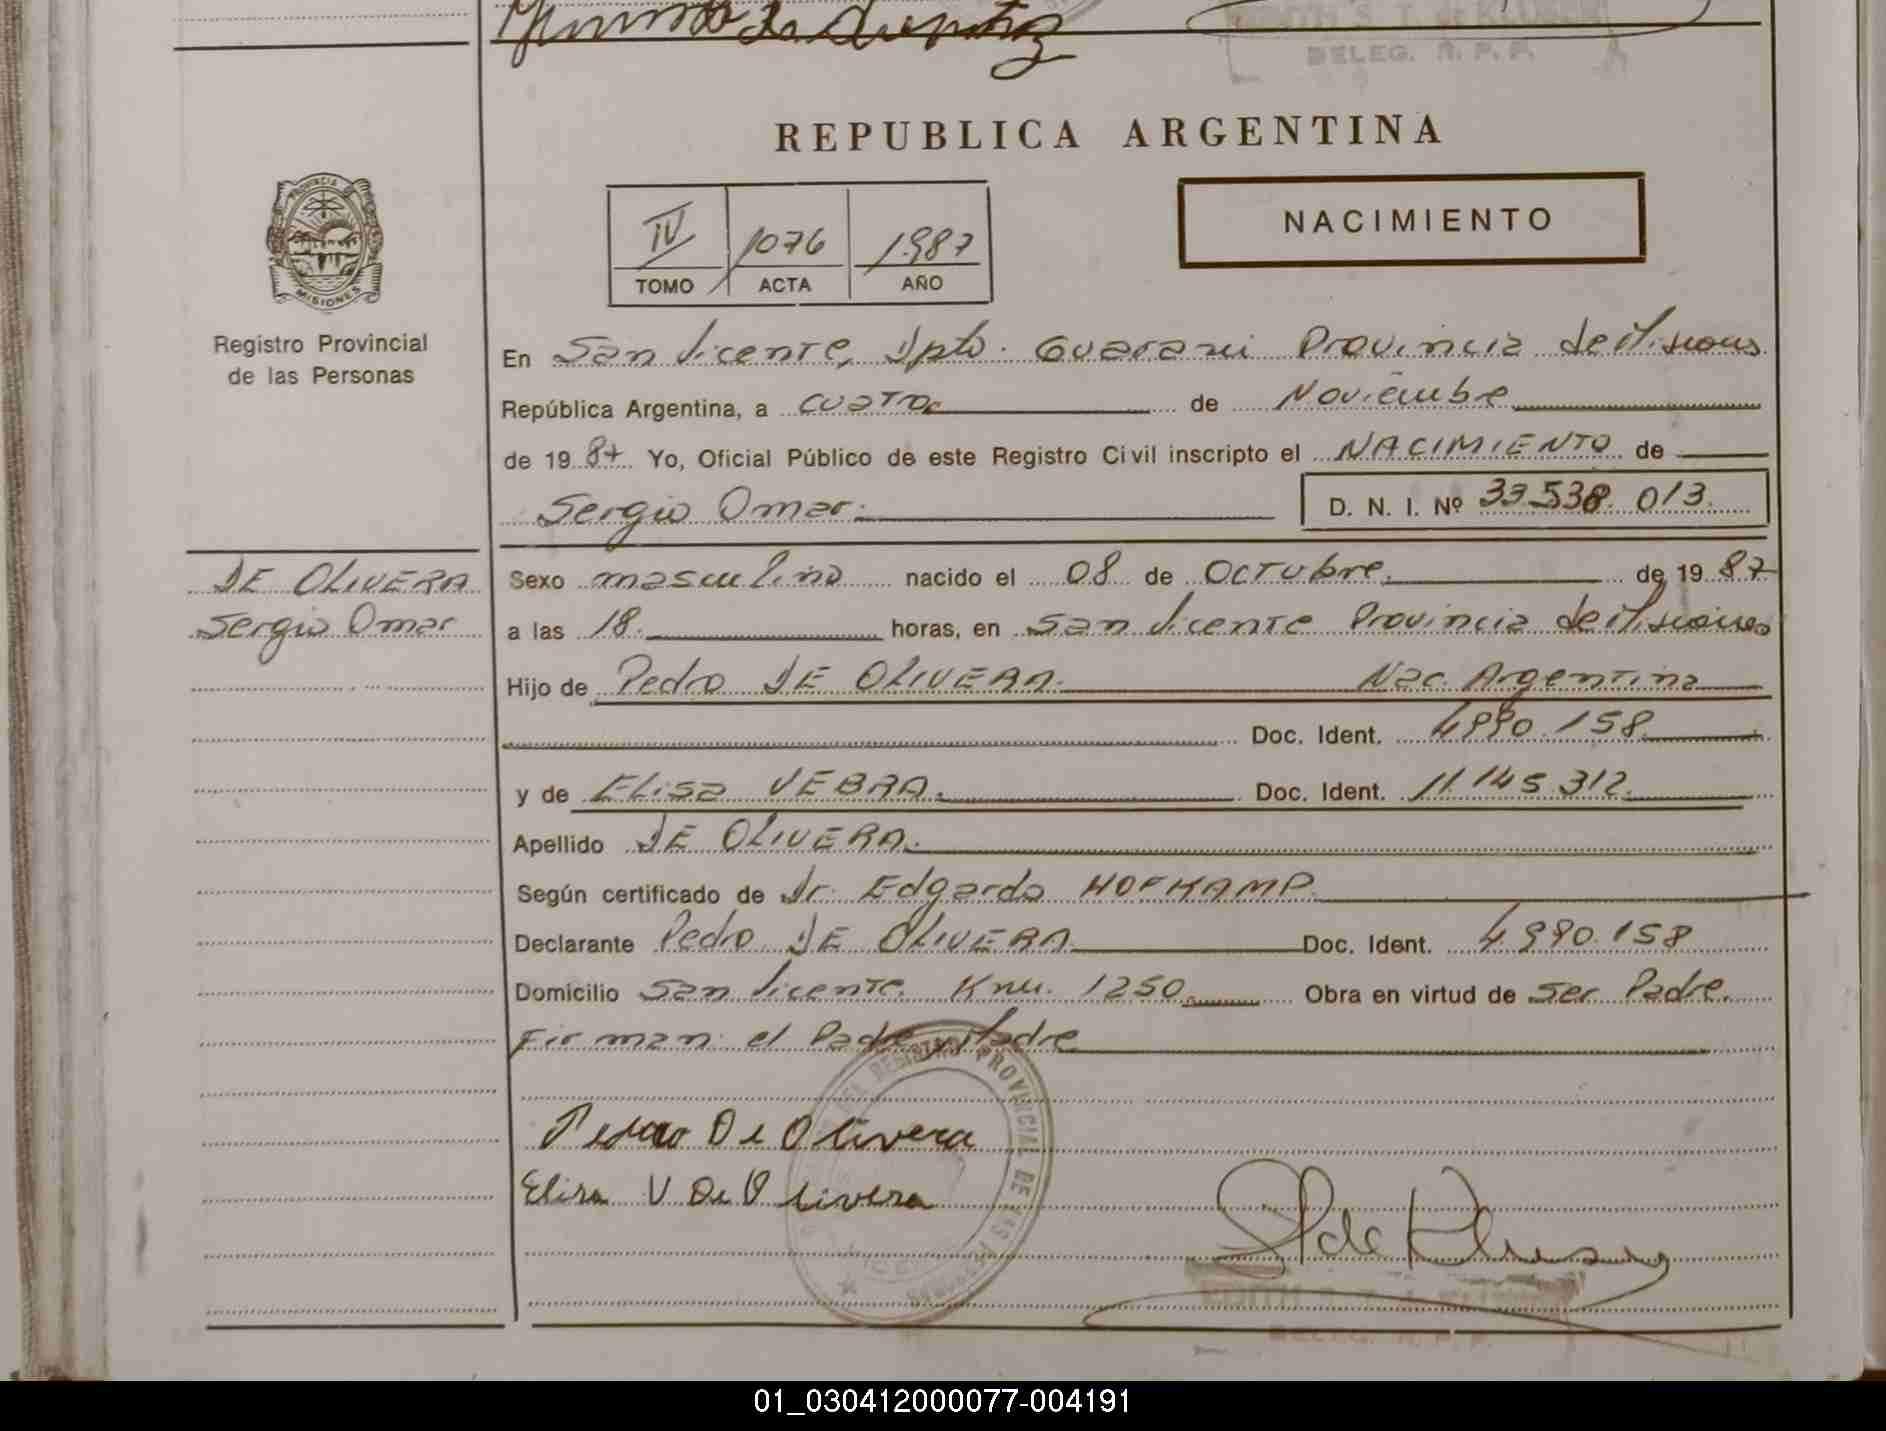 EDITH S. T. de KLUSENER
DELEG. R. P. P.
REPUBLICA ARGENTINA
IV 1076 1.987
TOMO ACTA AÑO
NACIMIENTO
PROVINCIA
MISIONES
Registro Provincial
de las Personas
En San Vicente, Dpto. Guarani Provincia de Misiones
República Argentina, a cuatro de Noviembre
de 1987. Yo, Oficial Público de este Registro Civil inscripto el NACIMIENTO de
Sergio Omar. D. N. I. Nº 33.538.013.
DE OLIVERA
Sergio Omar
Sexo masculino nacido el 08 de Octubre de 1987
a las 18 horas, en San Vicente Provincia de Misiones
Hijo de Pedro DE OLIVERA. Nac. Argentina
Doc. Ident. 4.990.158
y de Elisa VEBRA. Doc. Ident. 11.145.312.
Apellido DE OLIVERA.
Según certificado de Dr. Edgardo HOFKAMP.
Declarante Pedro DE OLIVERA Doc. Ident. 4.990.158
Domicilio San Vicente Km. 1250 Obra en virtud de ser Padre.
Firman: el Padre y Madre
DEL REGISTRO PROVINCIAL DE LAS PERSONAS
Pedro De Olivera
Elisa V De Olivera
DELEG. R. P. P.
01_030412000077-004191